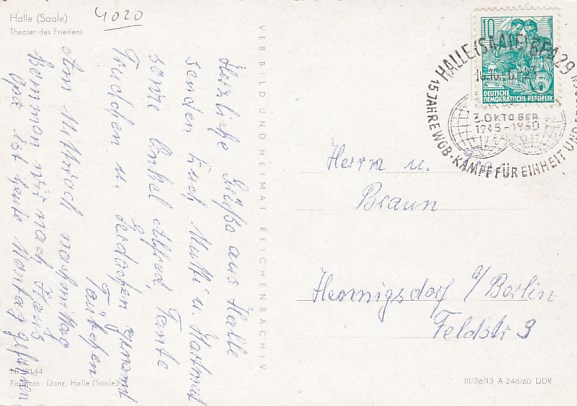 Halle (Saale)
Theater des Friedens
4020
Herzliche Grüße aus Halle
senden Euch Mutti u. Hartmut
sowie Onkel Alfred, Tante
Trudchen u.
Am Mittwoch nachmittag
kommen wir nach Haus
Opa ist heute Montag gefahren
144
Farbfoto: Danz, Halle (Saale)
VEB BILD UND HEIMAT REICHENBACH I. V.
10
DEUTSCHE
DEMOKRATISCHE REPUBLIK
HALLE (SAALE) BPA 29
3. OKTOBER
1945-1960
15 JAHRE WGB · KAMPF FÜR EINHEIT UND
Herrn u.
Braun
Hennigsdorf b/Berlin
Feldstr 3
III/26/13 A 246/60 DDR